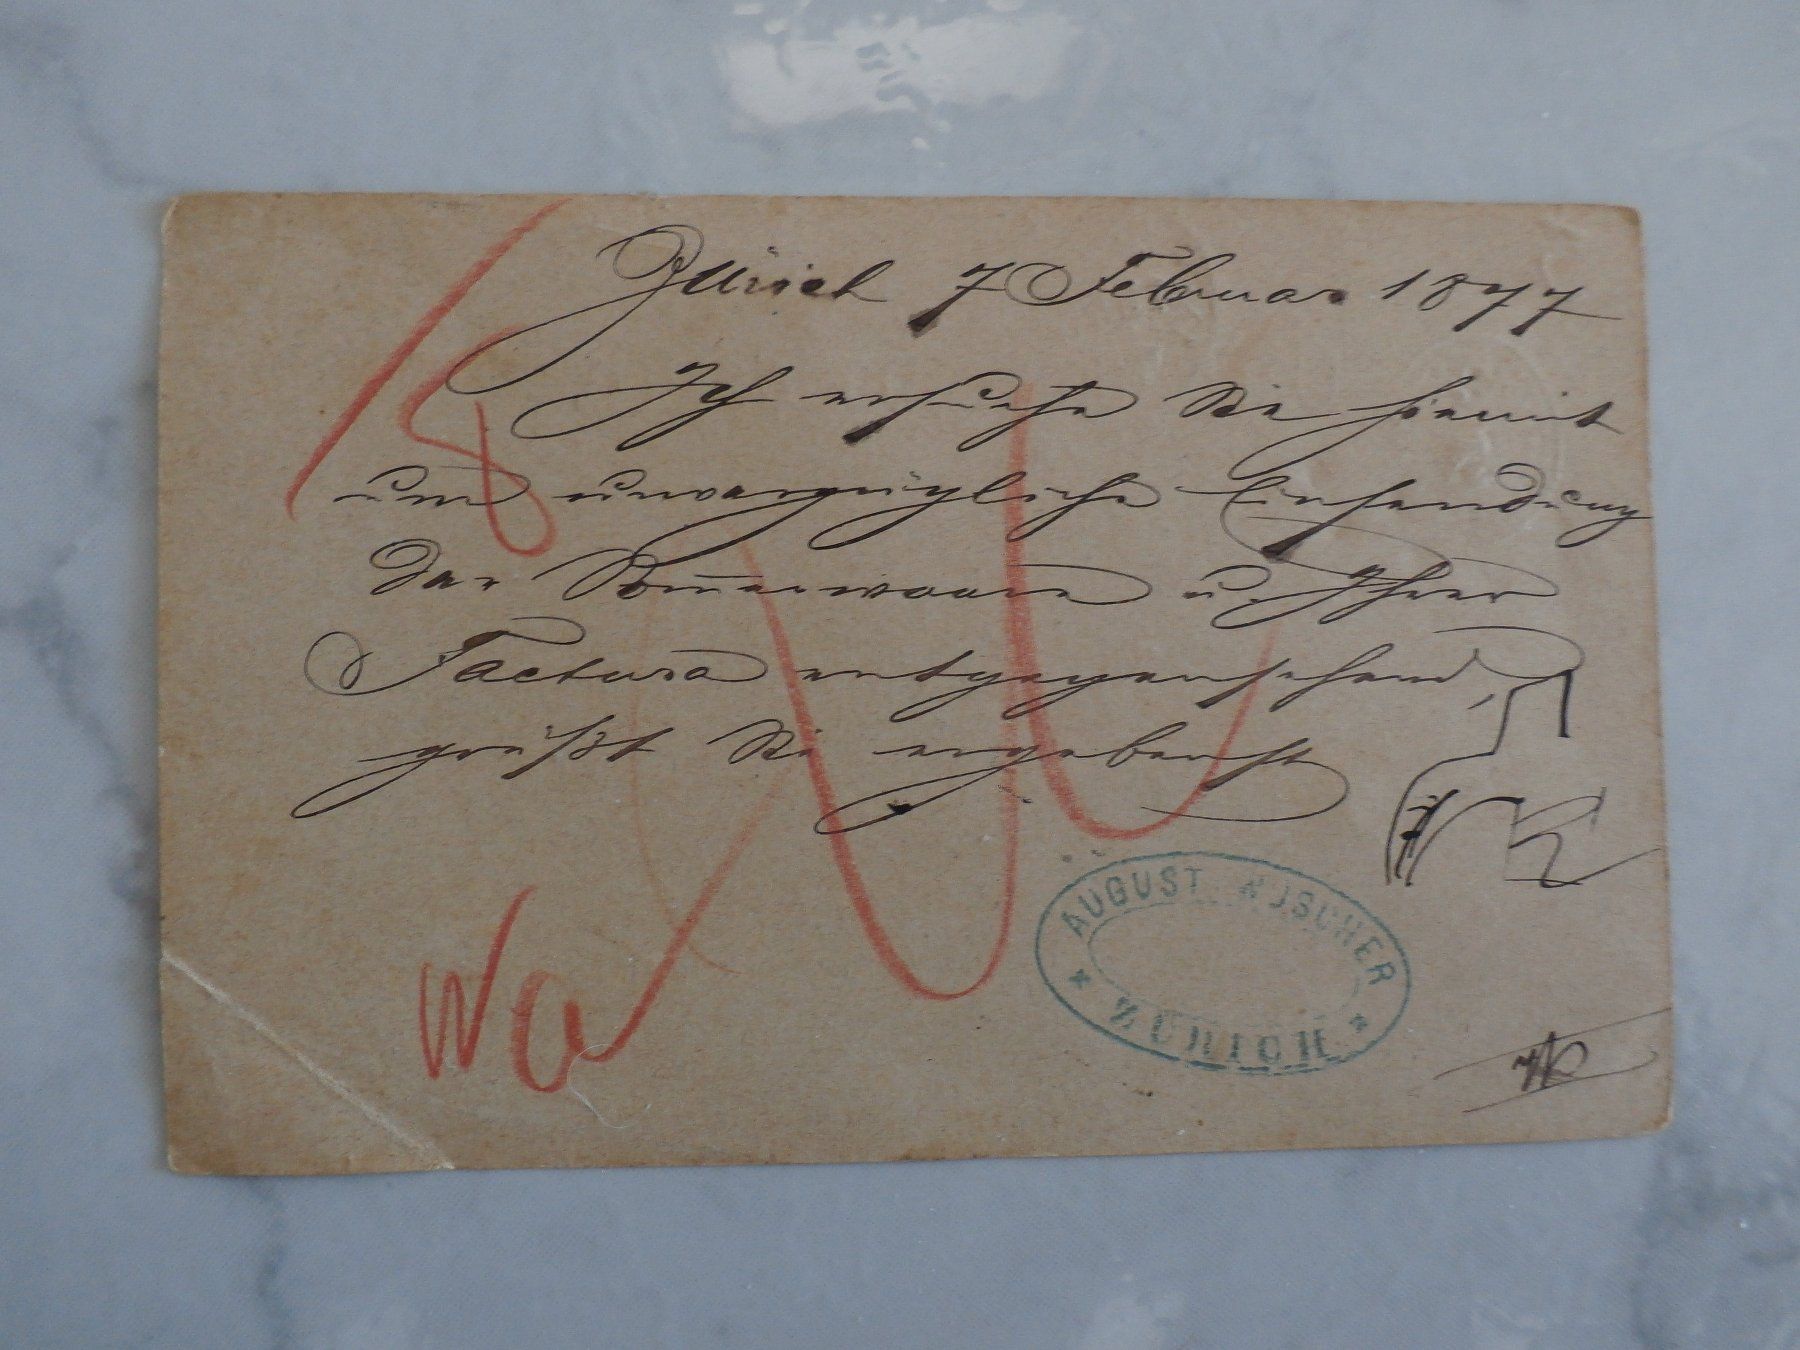 Zürich 7 Februar 1877
Ich ersuche Sie hiemit
um unverzügliche Einsendung
der Sommerwaare u. Ihrer
Factura entgegensehend
grüßt Sie ergebenst
8
Wa
AUGUST
ZÜRICH